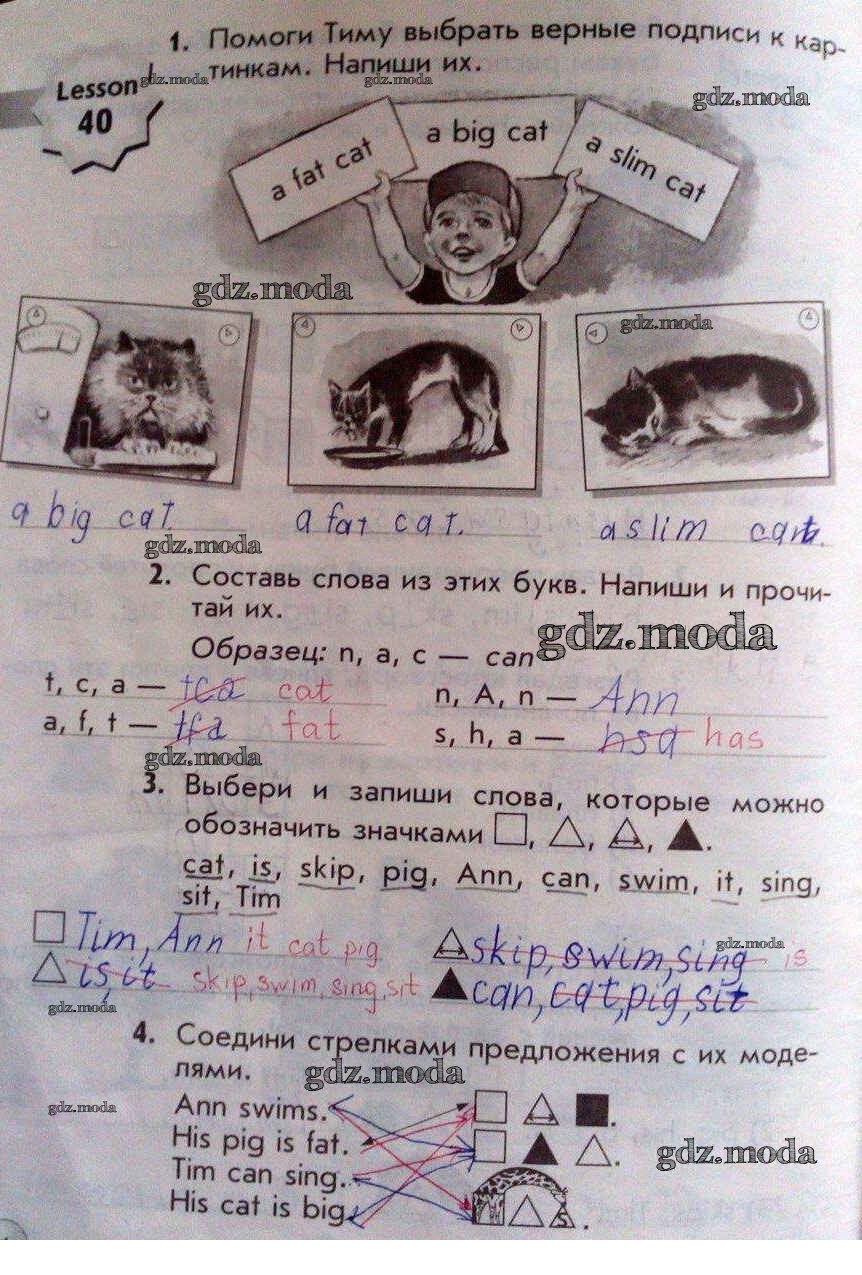 1. Помоги Тиму выбрать верные подписи к кар-
тинкам. Напиши их.
Lesson
40
gdz.moda
gdz.moda
gdz.moda
a fat cat
a big cat
a slim cat
gdz.moda
gdz.moda
a big cat.
a fat cat.
a slim cat.
gdz.moda
2. Составь слова из этих букв. Напиши и прочи-
тай их.
gdz.moda
Образец: n, a, c — can
t, c, a — tca cat
n, A, n — Ann
a, f, t — tfa fat
s, h, a — hsa has
gdz.moda
3. Выбери и запиши слова, которые можно
обозначить значками □, △, , ▲.
cat, is, skip, pig, Ann, can, swim, it, sing,
sit, Tim
□ Tim, Ann it cat pig
skip, swim, sing is
gdz.moda
△ is, it skip, swim, sing, sit
▲ can, cat, pig, sit
gdz.moda
4. Соедини стрелками предложения с их моде-
лями.
gdz.moda
Ann swims.
gdz.moda
His pig is fat.
Tim can sing.
gdz.moda
His cat is big.